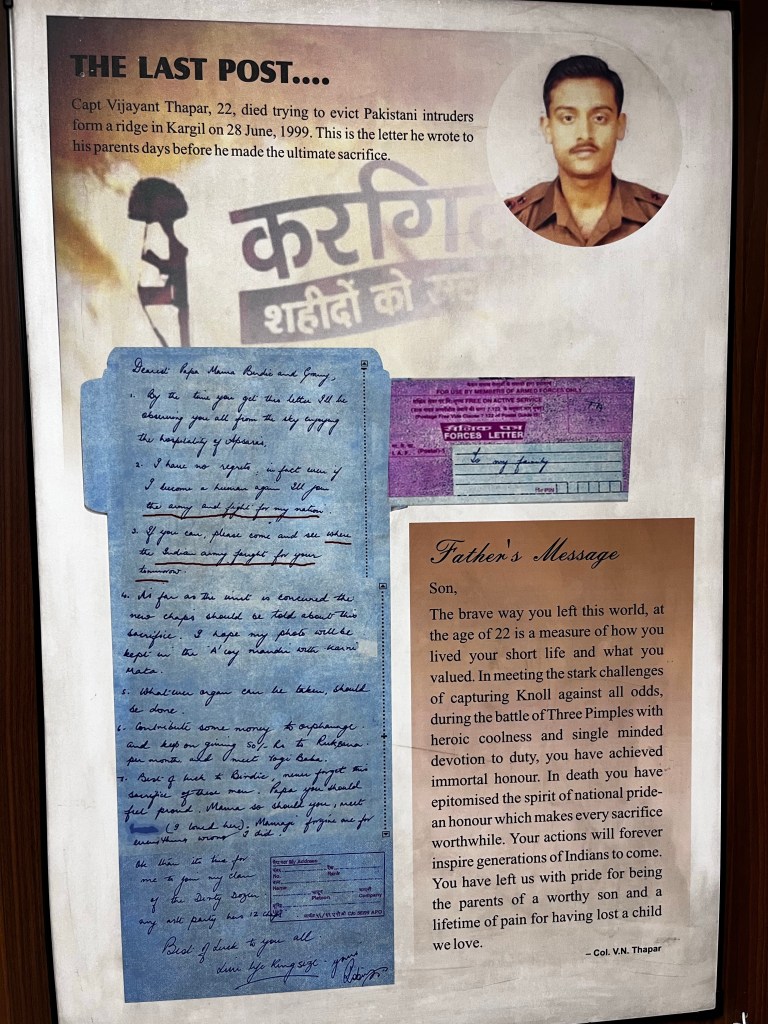 THE LAST POST....
Capt Vijayant Thapar, 22, died trying to evict Pakistani intruders
form a ridge in Kargil on 28 June, 1999. This is the letter he wrote to
his parents days before he made the ultimate sacrifice.
करगिल
शहीदों को
Dearest Papa Mama Birdie and Granny,
1. By the time you get this letter I'll be
observing you all from the sky enjoying
the hospitality of Apsaras.
2. I have no regrets, in fact even if
I become a human again I'll join
the army and fight for my nation.
3. If you can, please come and see where
the Indian army fought for your
tomorrow.
4. As far as the unit is concured the
new chaps should be told about this
sacrifice. I hope my photo will be
kept in the 'A' coy mandir with Karni
Mata.
5. Whatever organ can be taken, should
be done.
6. Contribute some money to orphanage
and keep on giving 50/- Rs to Ruksana
per month and meet Yogi Baba.
7. Best of luck to Birdie, never forget this
sacrifice of these men. Papa you should
feel proud. Mama so should you, meet
(I loved her). Mamaji forgive me for
everything wrong I did.
Ok then its time for
me to join my clan
of the Dirty Dozen
my party has 12 chaps
Best of Luck to you all.
Live life Kingsize. yours
Robin
My Address
No.
Rank
Name
Platoon
Company
APO
FOR USE BY MEMBERS OF ARMED FORCES ONLY
FREE ON ACTIVE SERVICE
सैनिक पत्र
FORCES LETTER
To my family
PIN
Father's Message
Son,
The brave way you left this world, at
the age of 22 is a measure of how you
lived your short life and what you
valued. In meeting the stark challenges
of capturing Knoll against all odds,
during the battle of Three Pimples with
heroic coolness and single minded
devotion to duty, you have achieved
immortal honour. In death you have
epitomised the spirit of national pride-
an honour which makes every sacrifice
worthwhile. Your actions will forever
inspire generations of Indians to come.
You have left us with pride for being
the parents of a worthy son and a
lifetime of pain for having lost a child
we love.
– Col. V.N. Thapar